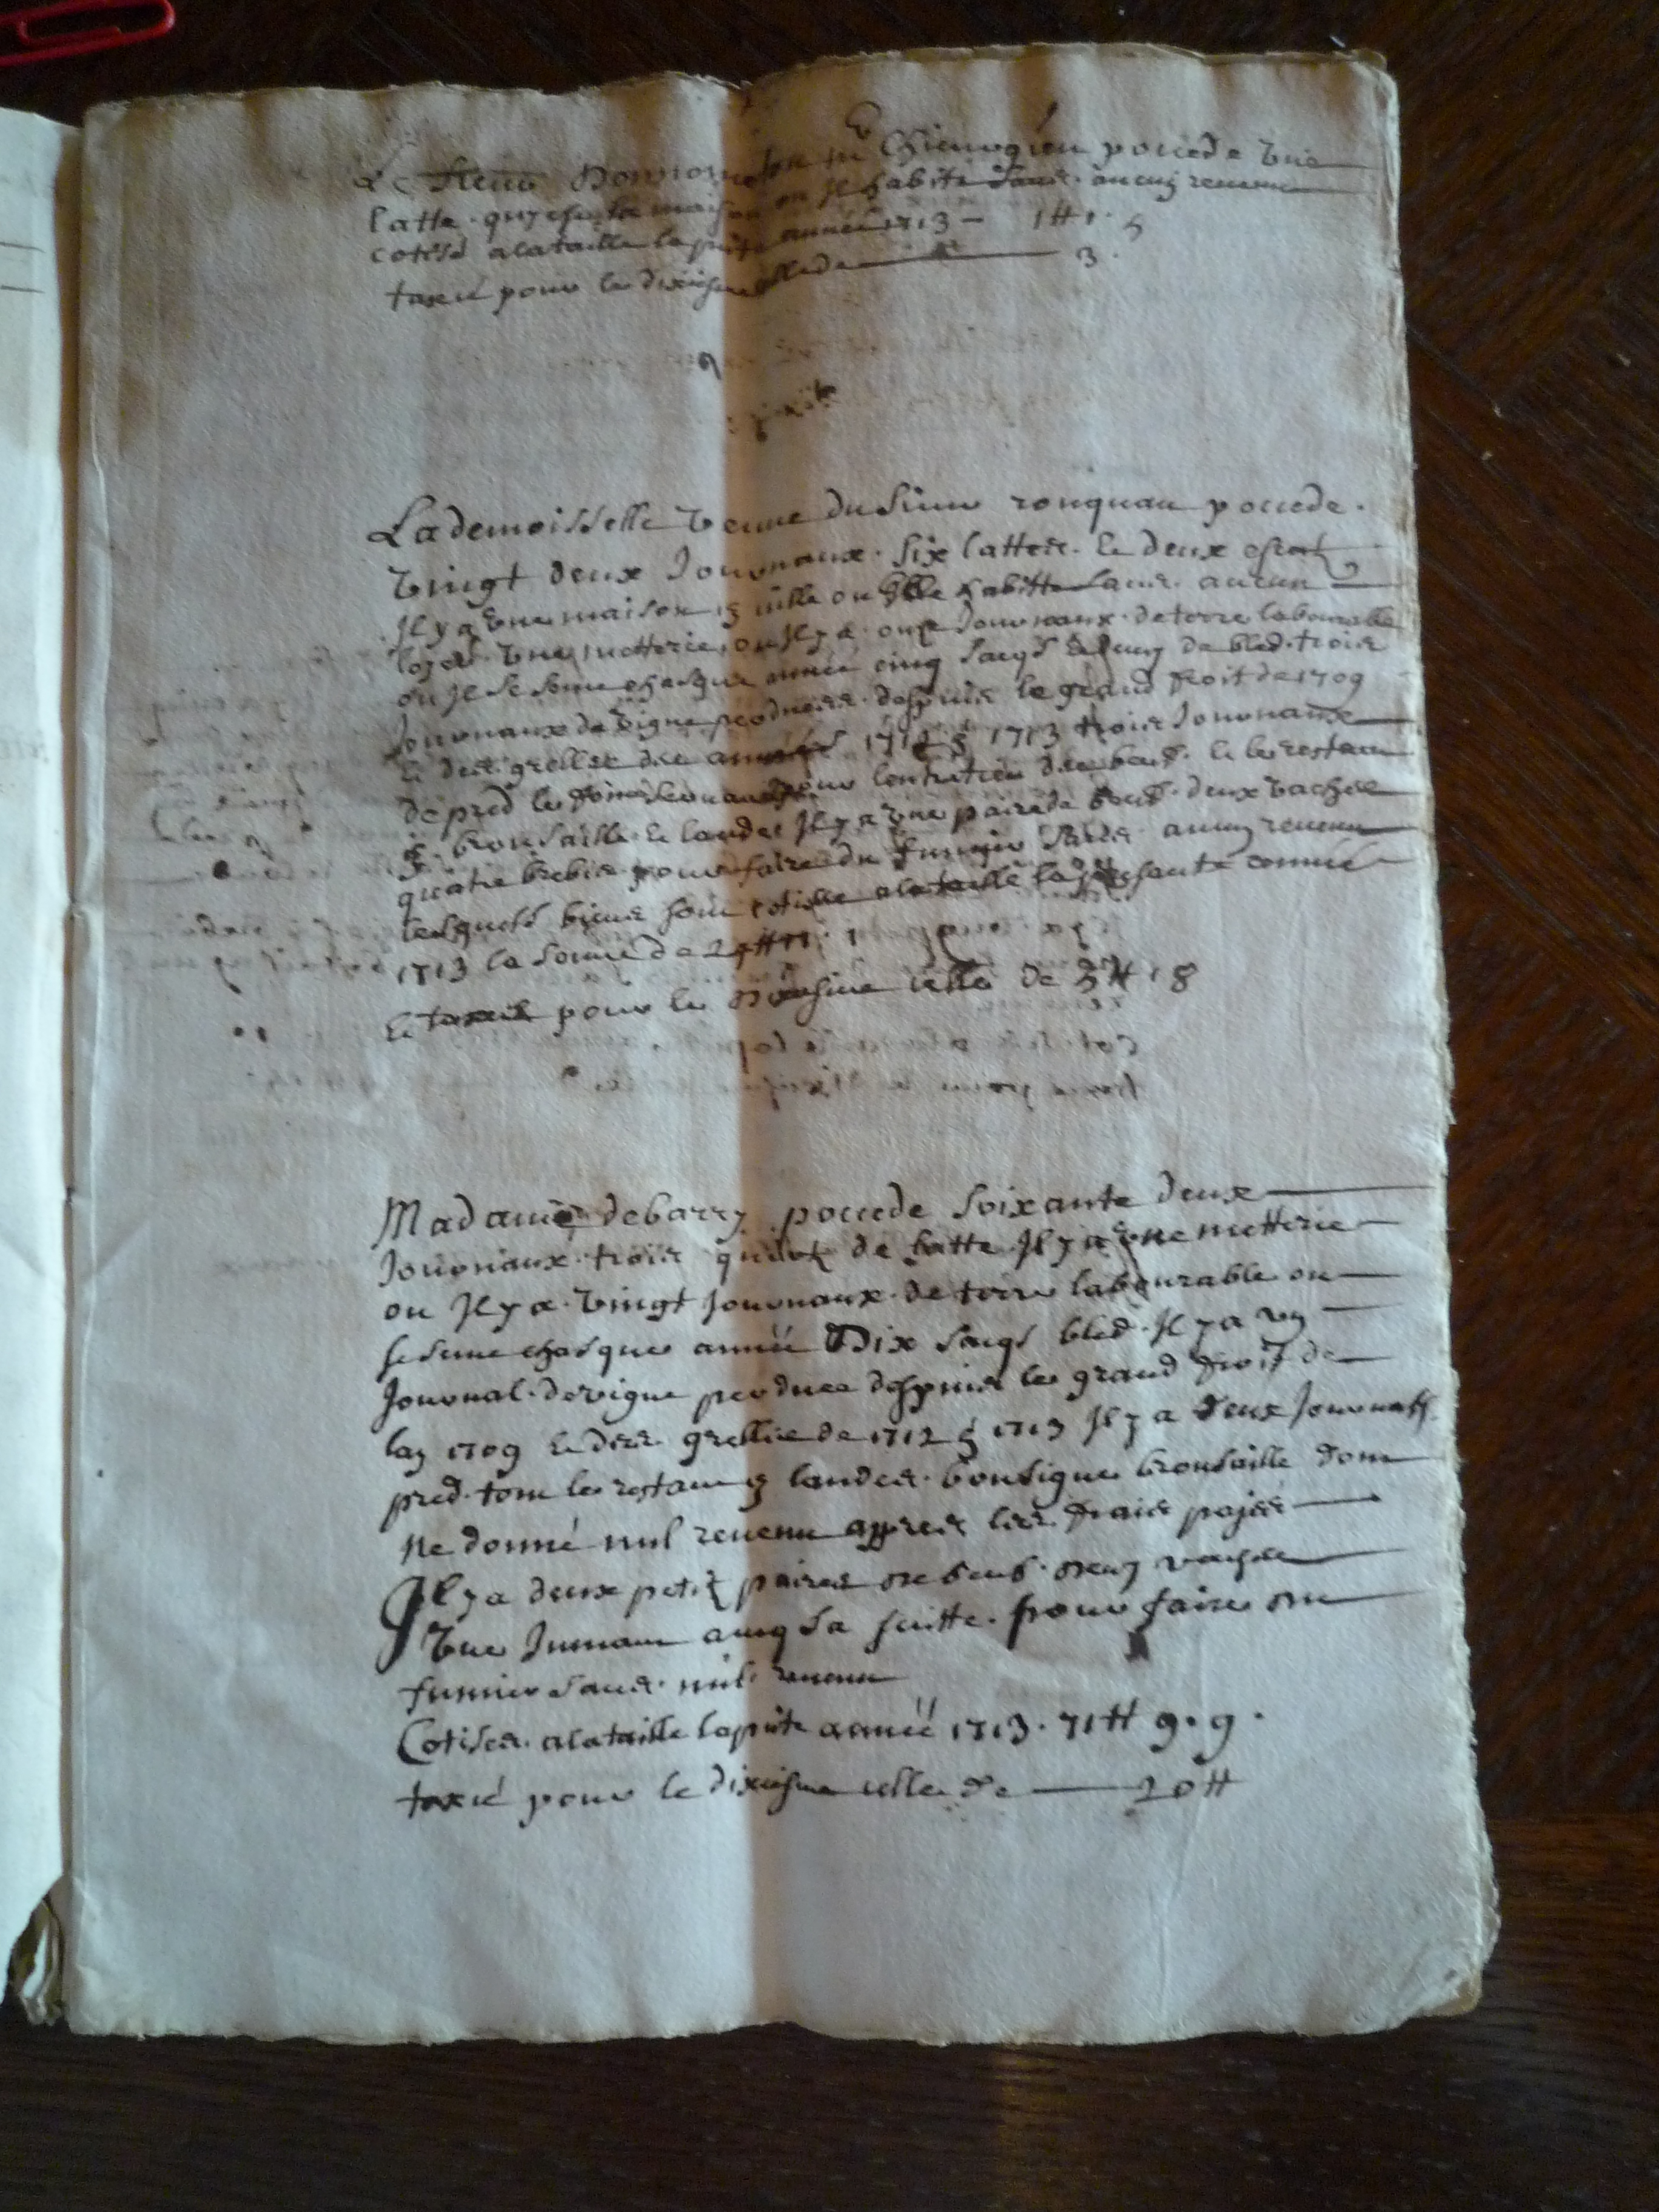 Le sieur chirurgien pocede une
latte quy est sa maison ou jl habite sans aucun revenu
cotisé a la taille la pnte année 1713 – 1 tt 1 s
taxié pour le dixiesme celle de 3
La demoisselle veuve du sieur ronquau pocede
vingt deux Journaux six lattes
Jl y a une maison ville ou elle habitte sans aucun
loyer une metterie ou jl y a onze Journaux de terre labourable
ou jl se seme chasque année cinq sacqs de bled trois
Journaux de vigne perdues despuis le grand froit de 1709
le des gresles des années 1712 & 1713 trois Journaux
de pred le foins pour lentretien des beufs le restant
brousaille & landes Jl y a une paire de beufs deux vaches
quatre brebis pour faire du fumier sans aucun revenu
lesquels biens sont cotisse a la taille la presante année
1713 la somme de
taxiée pour le dixiesme celle de 18
Madame debarry pocede soixante deux
Journaux trois quart de latte Jl y a une metterie
ou Jl y a vingt Journaux de terre labourable ou
se seme chasque année Dix sacqs bled Jl y a un
Journal de vigne perdues despuis le grand froit de
lan 1709 & des gresles de 1712 & 1713 Jl y a deux Journaux
pred tout le restant landes bousigue brousaille dont
ne donné nul revenu appres les frais payés
Jl y a deux petit paires de beufs vaches
une Jumant avecq sa suitte pour faire du
fumier sans nul revenu
Cotisée a la taille la pnte année 1713 71 tt 9 9
taxié pour le dixiesme celle de 20 tt